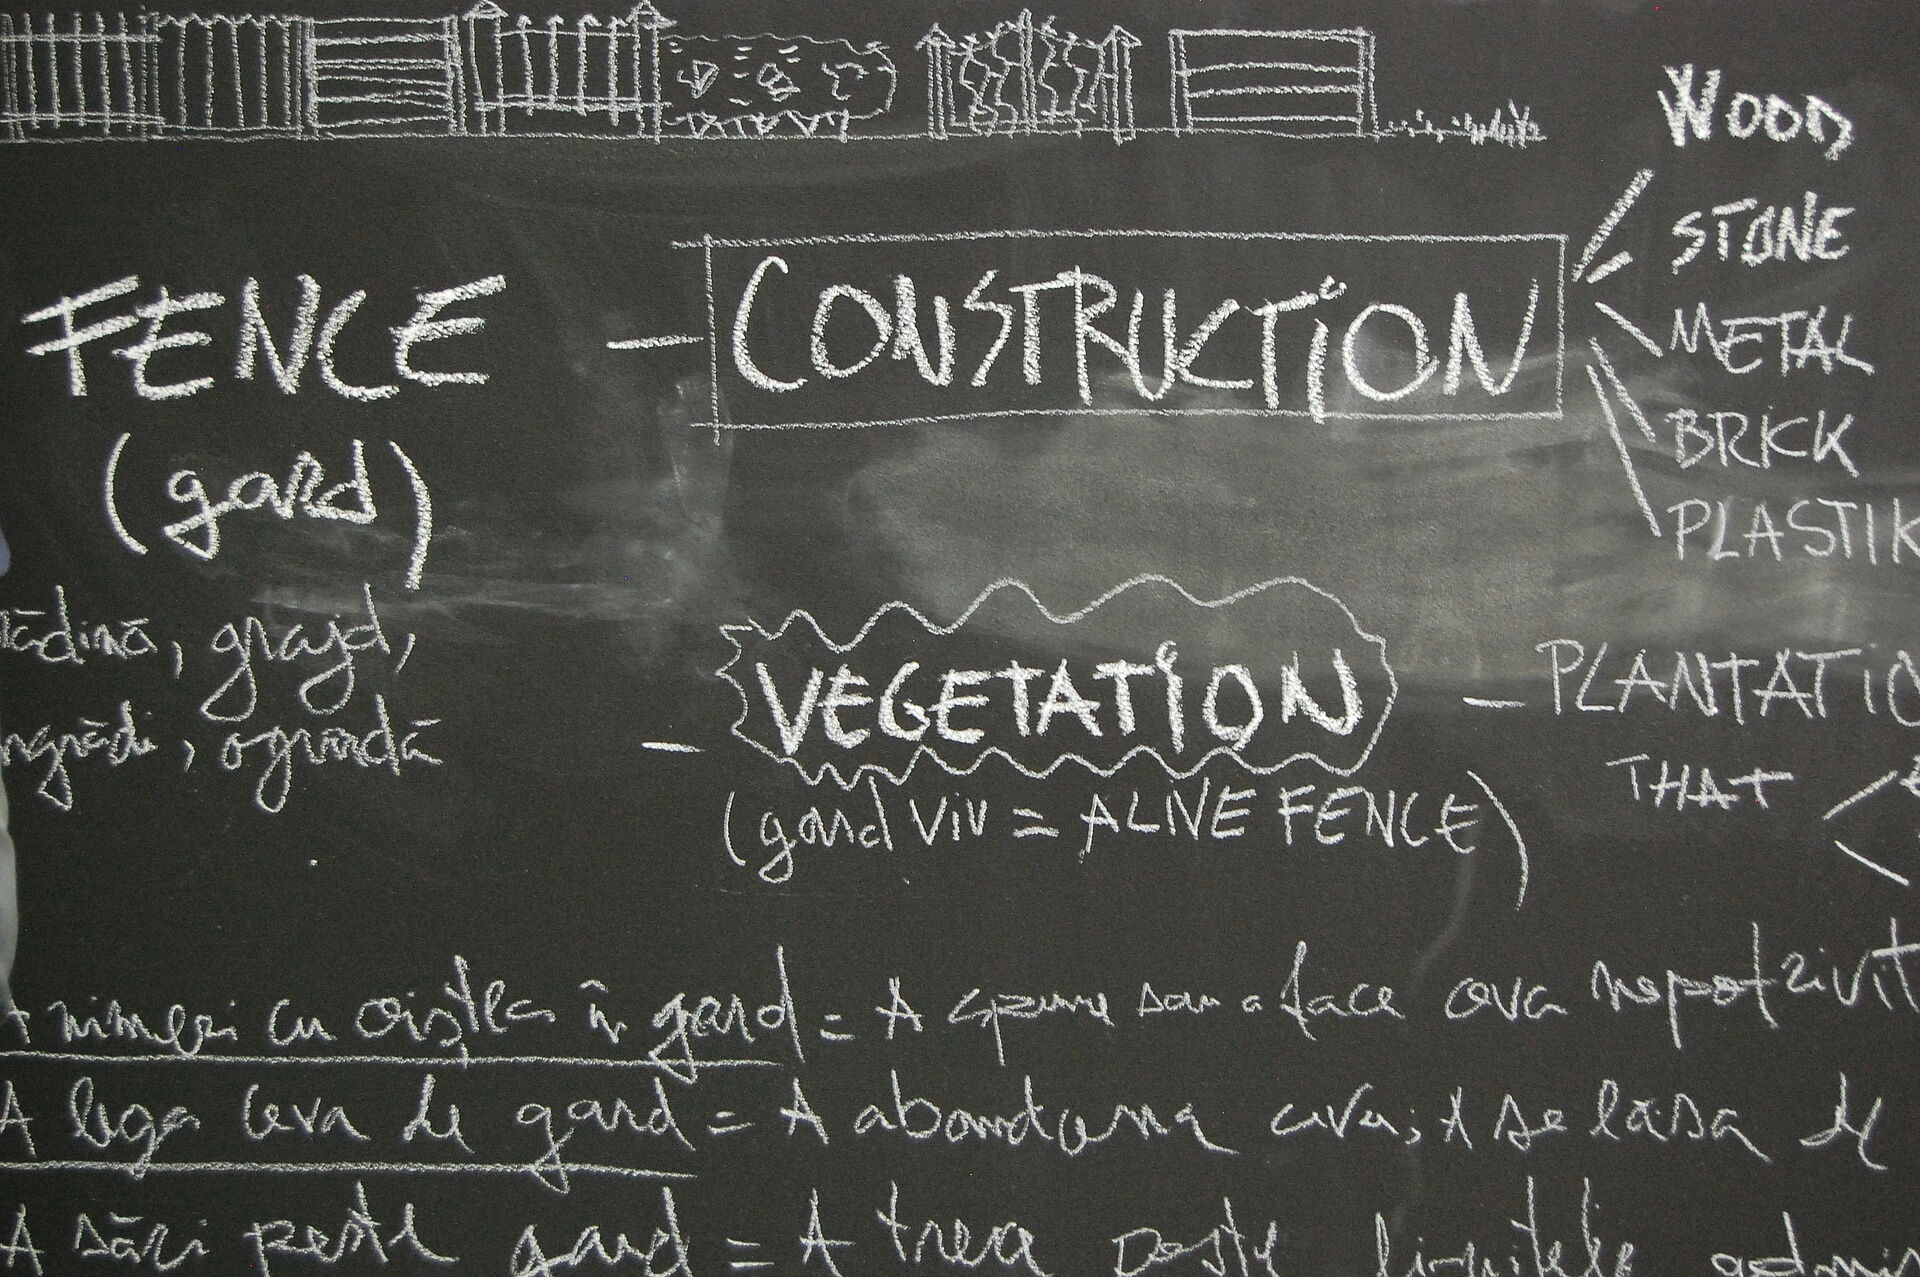 WOOD
STONE
FENCE - CONSTRUCTION
METAL
(gard)
BRICK
PLASTIK
ădină, grajd,
VEGETATION - PLANTATIO
ngrădi, ogradă
THAT
(gard viu = ALIVE FENCE)
A nimeri cu oiștea în gard = A spune sau a face ceva nepotrivit
A lega ceva de gard = A abandona ceva; A se lăsa de
A sări peste gard = A trece peste limitele admis